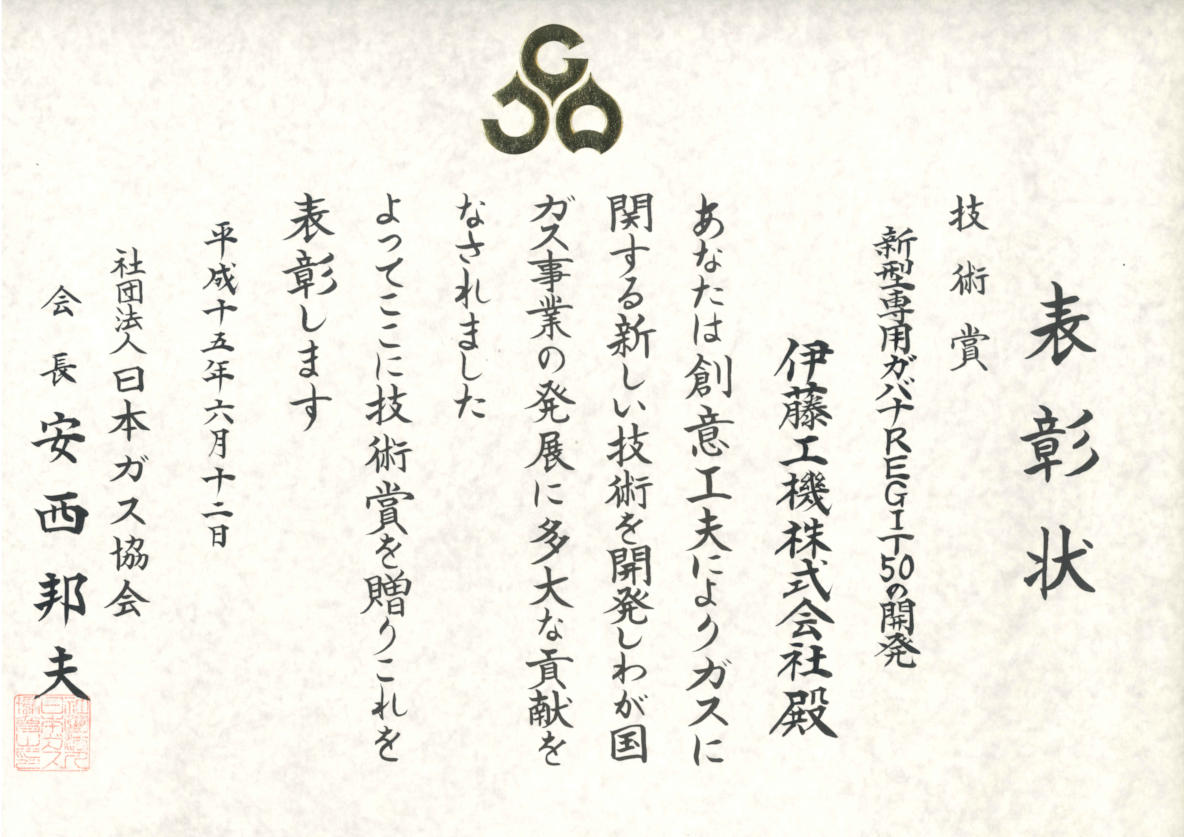 表彰状
技術賞
新型専用ガバナREGIT50の開発
伊藤工機株式会社殿
あなたは創意工夫によりガスに
関する新しい技術を開発しわが国
ガス事業の発展に多大な貢献を
なされました
よってここに技術賞を贈りこれを
表彰します
平成十五年六月十二日
社団法人日本ガス協会
会長安西邦夫
JGA